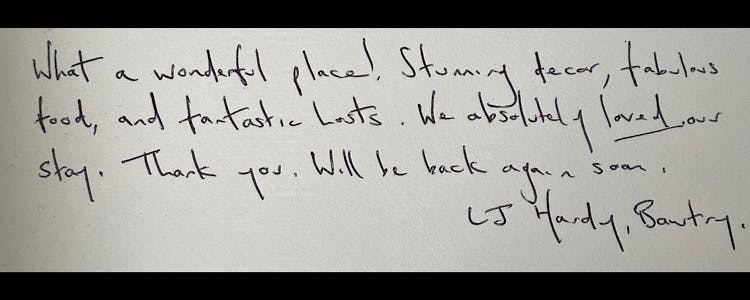 What a wonderful place! Stunning decor, fabulous
food, and fantastic hosts. We absolutely loved our
stay. Thank you. Will be back again soon.
LJ Hardy, Bawtry.